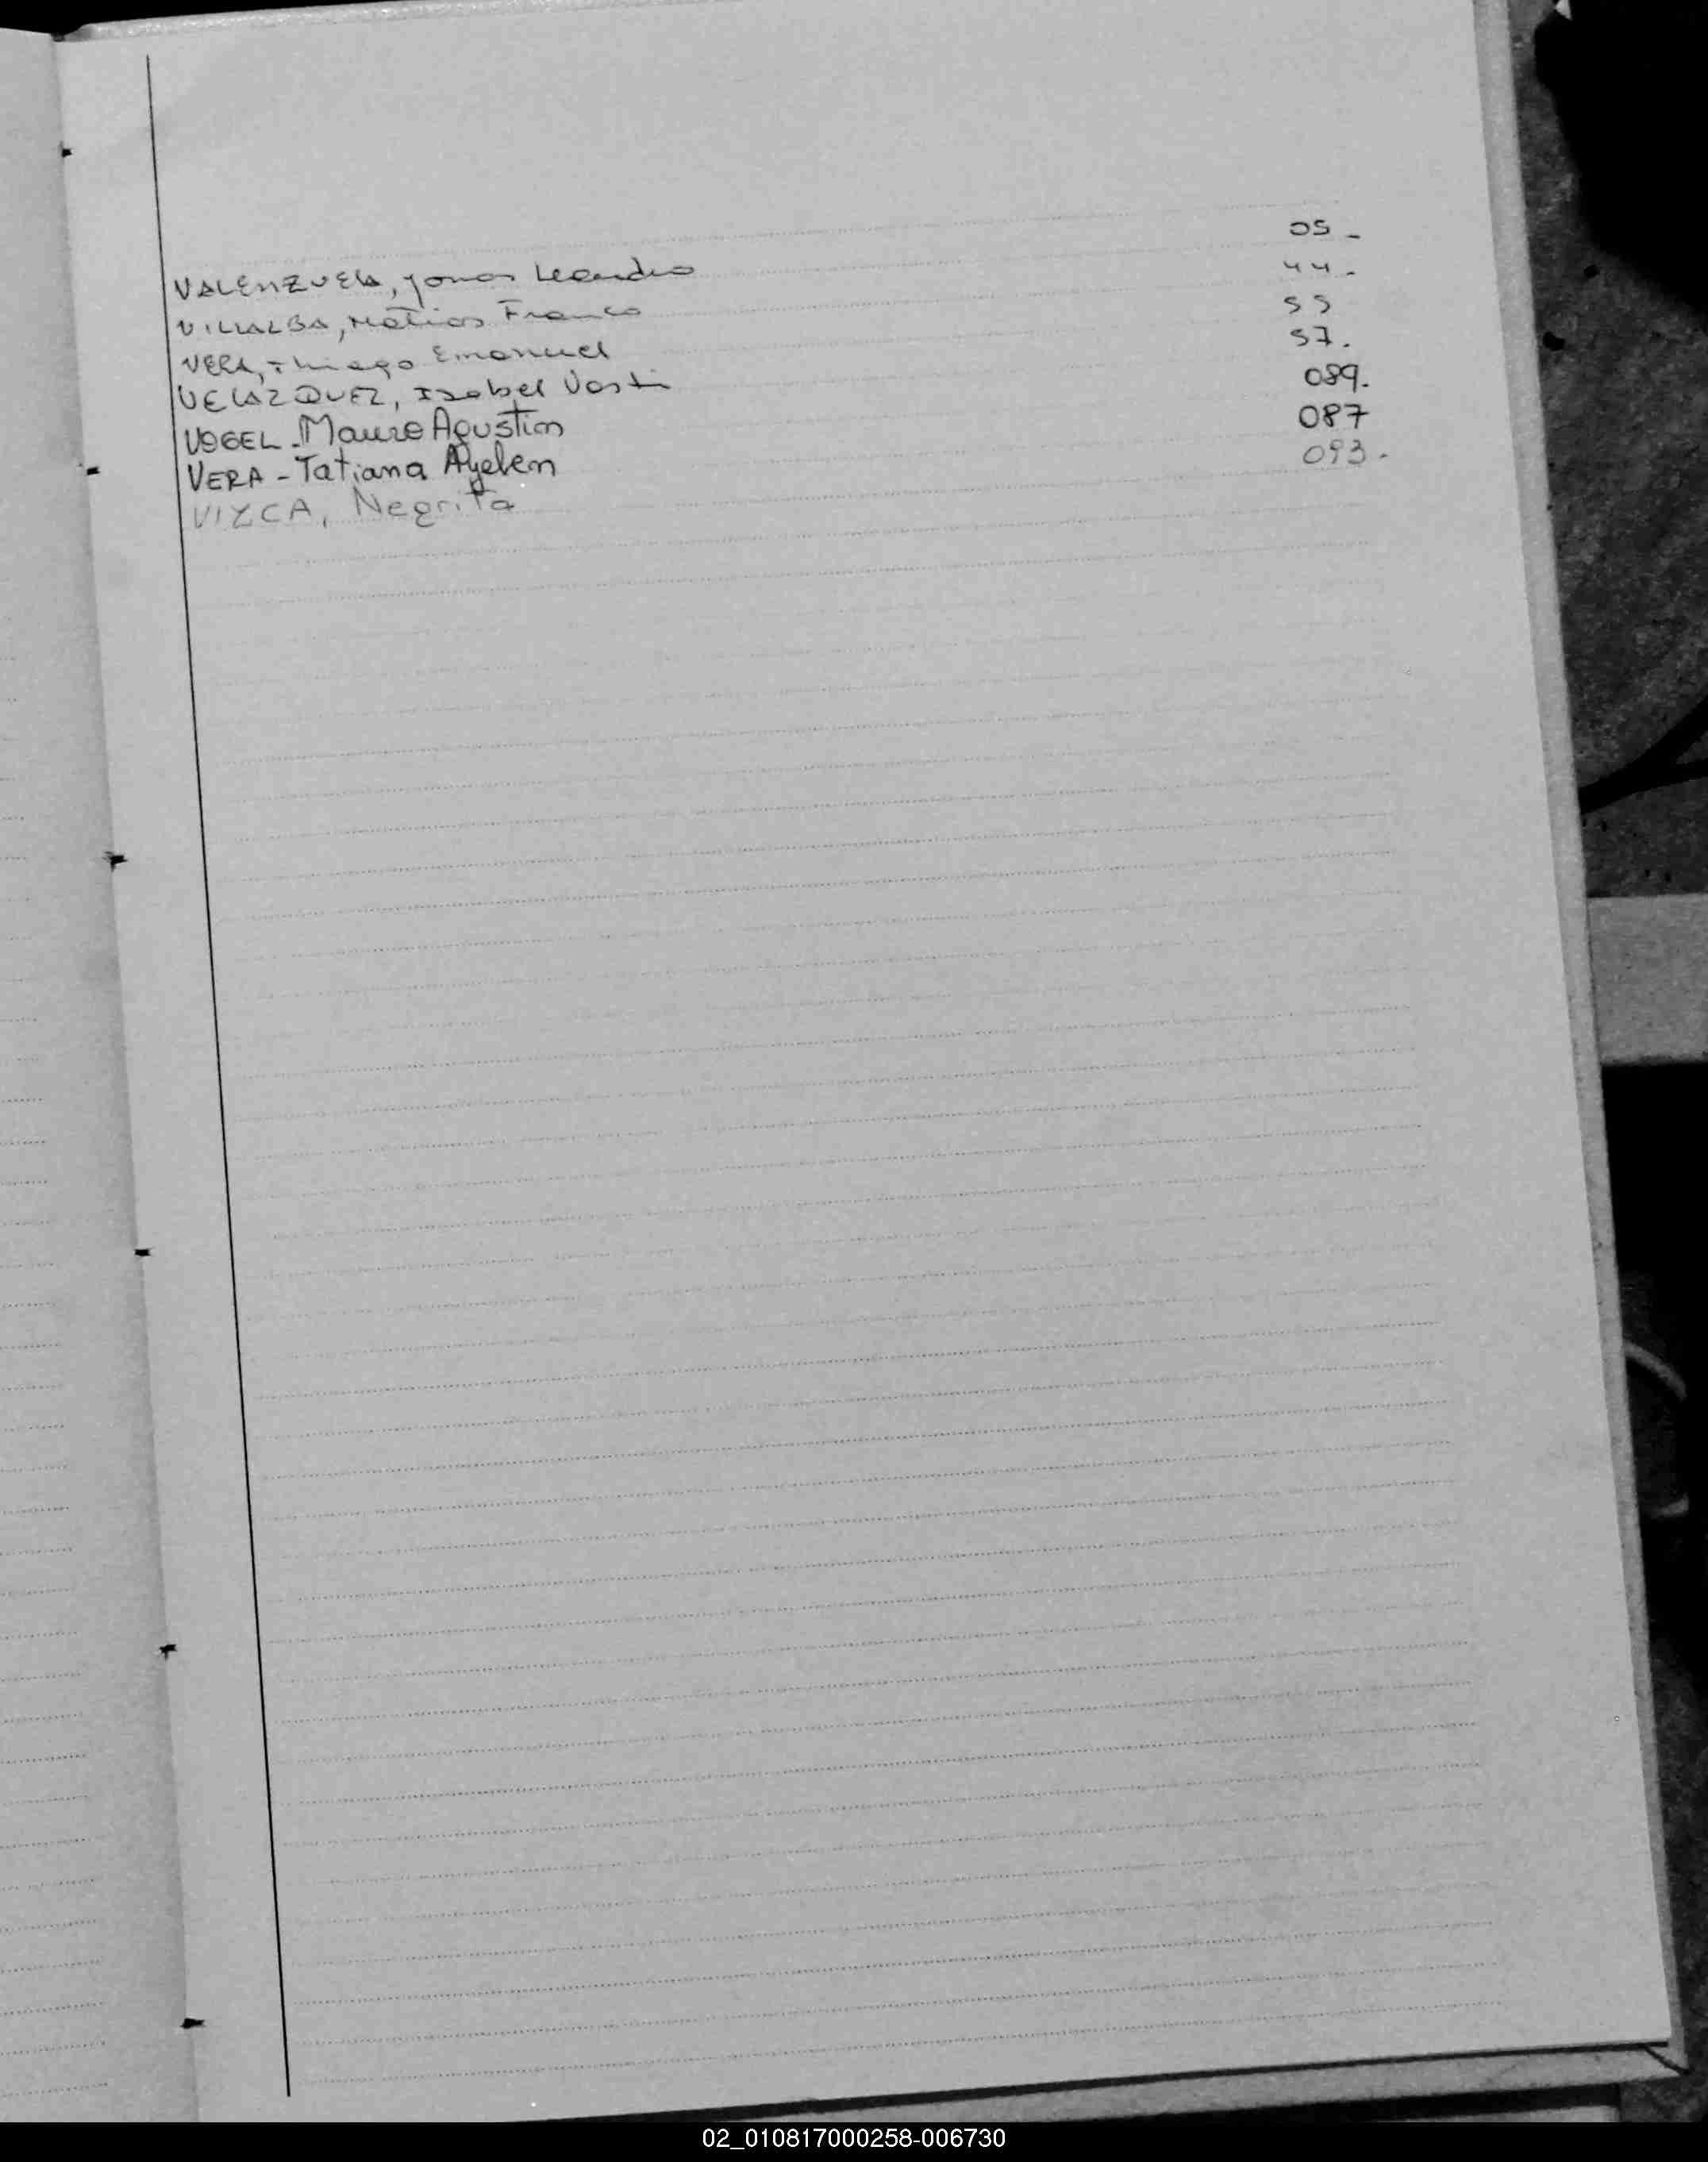 VALENZUELA, Jonas Leandro 05 -
VILLALBA, Matias Franco 44 -
VERA, Thiago Emanuel 55
VELAZQUEZ, Isabel Vasti 57.
VOGEL - Mauro Agustin 089.
VERA - Tatiana Ayelen 087
VIZCA, Negrita 093.
02_010817000258-006730